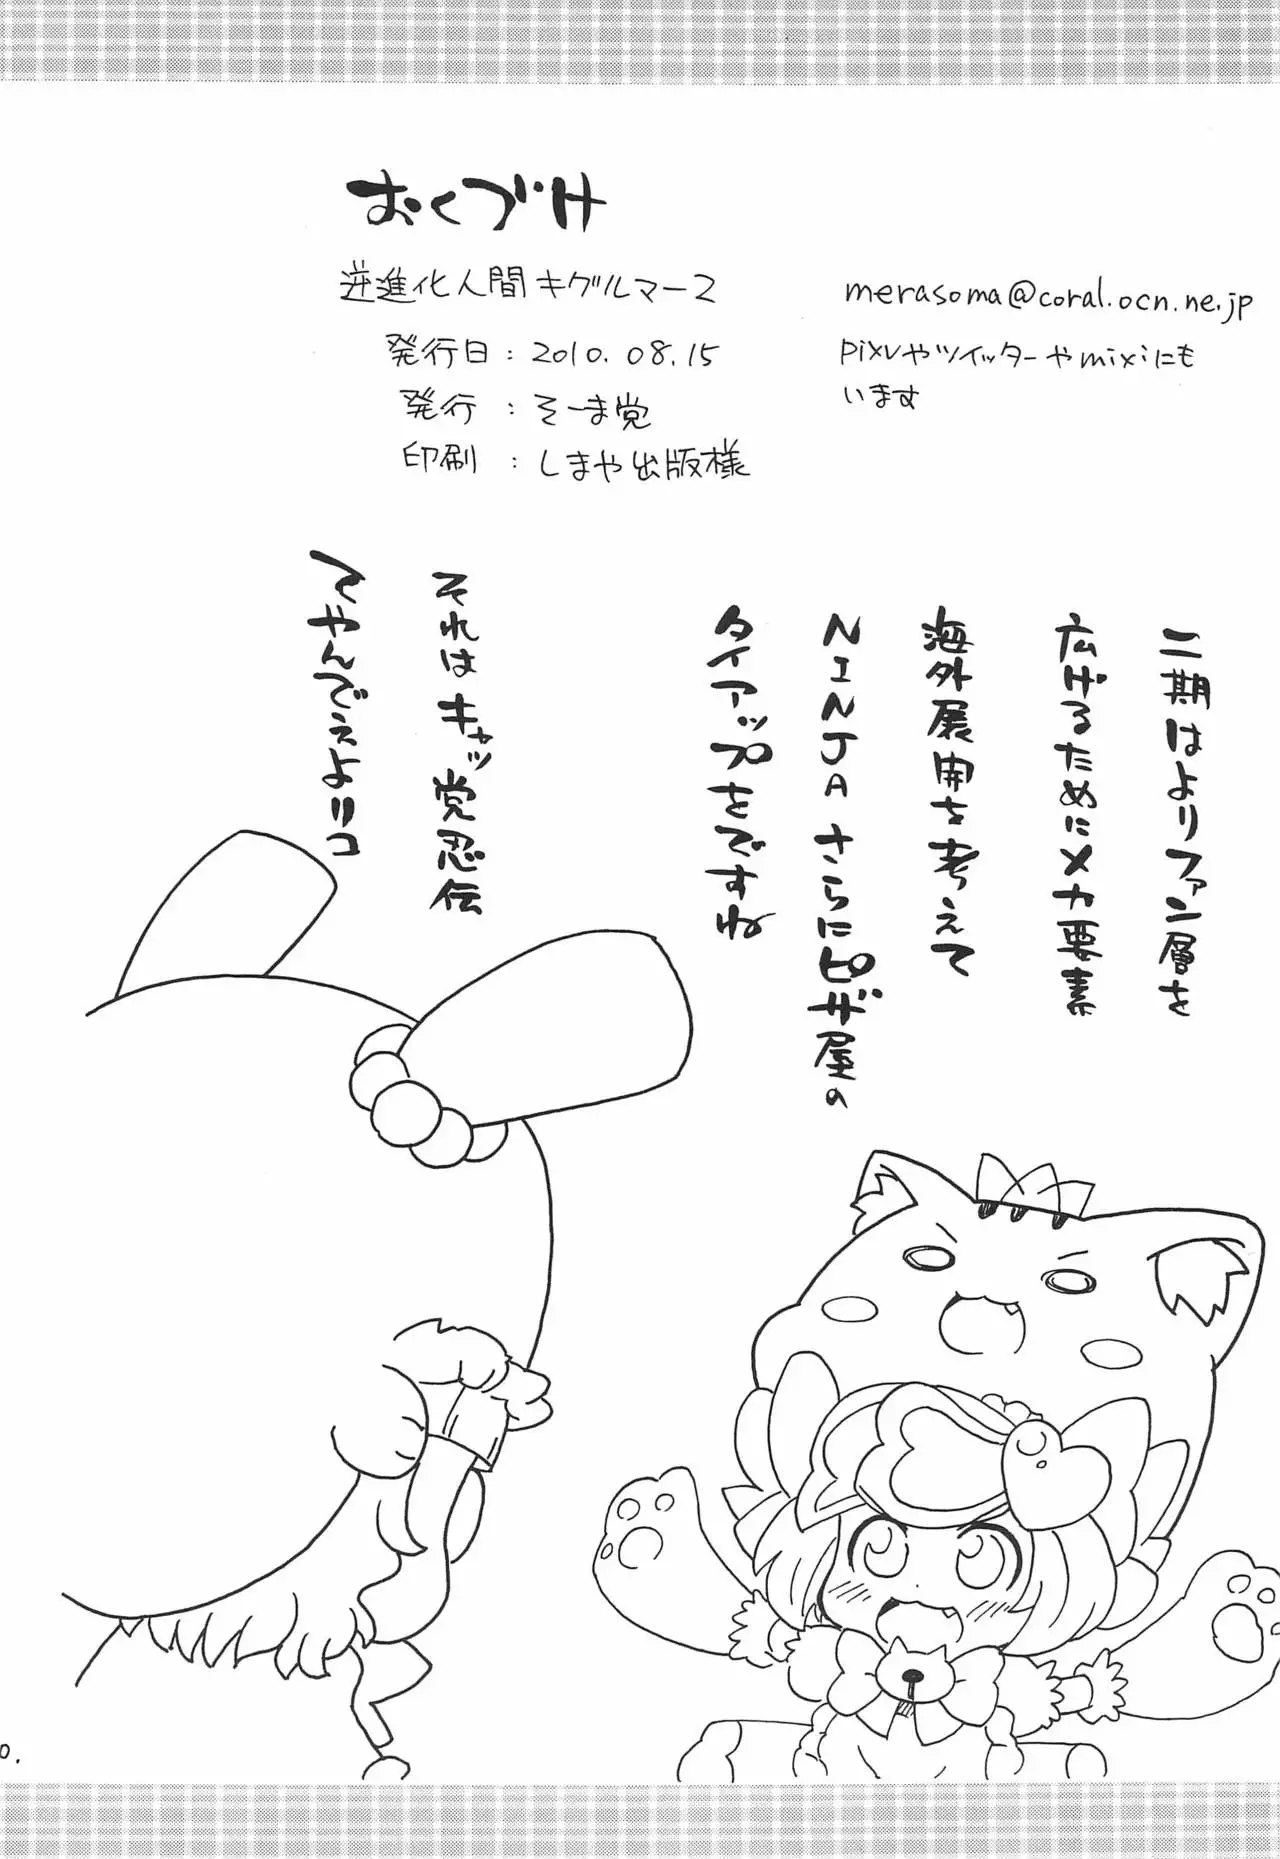 おくづけ
逆進化人間キグルマー2
発行日：2010.08.15
発行：そーま党
印刷：しまや出版様
merasoma@coral.ocn.ne.jp
pixvやツイッターやmixiにも
います
二期はよりファン層を
広げるためにメカ要素
海外展開を考えて
NINJAさらにピザ屋の
タイアップをですね
それはキャッ党忍伝
てやんでえよリコ
0.